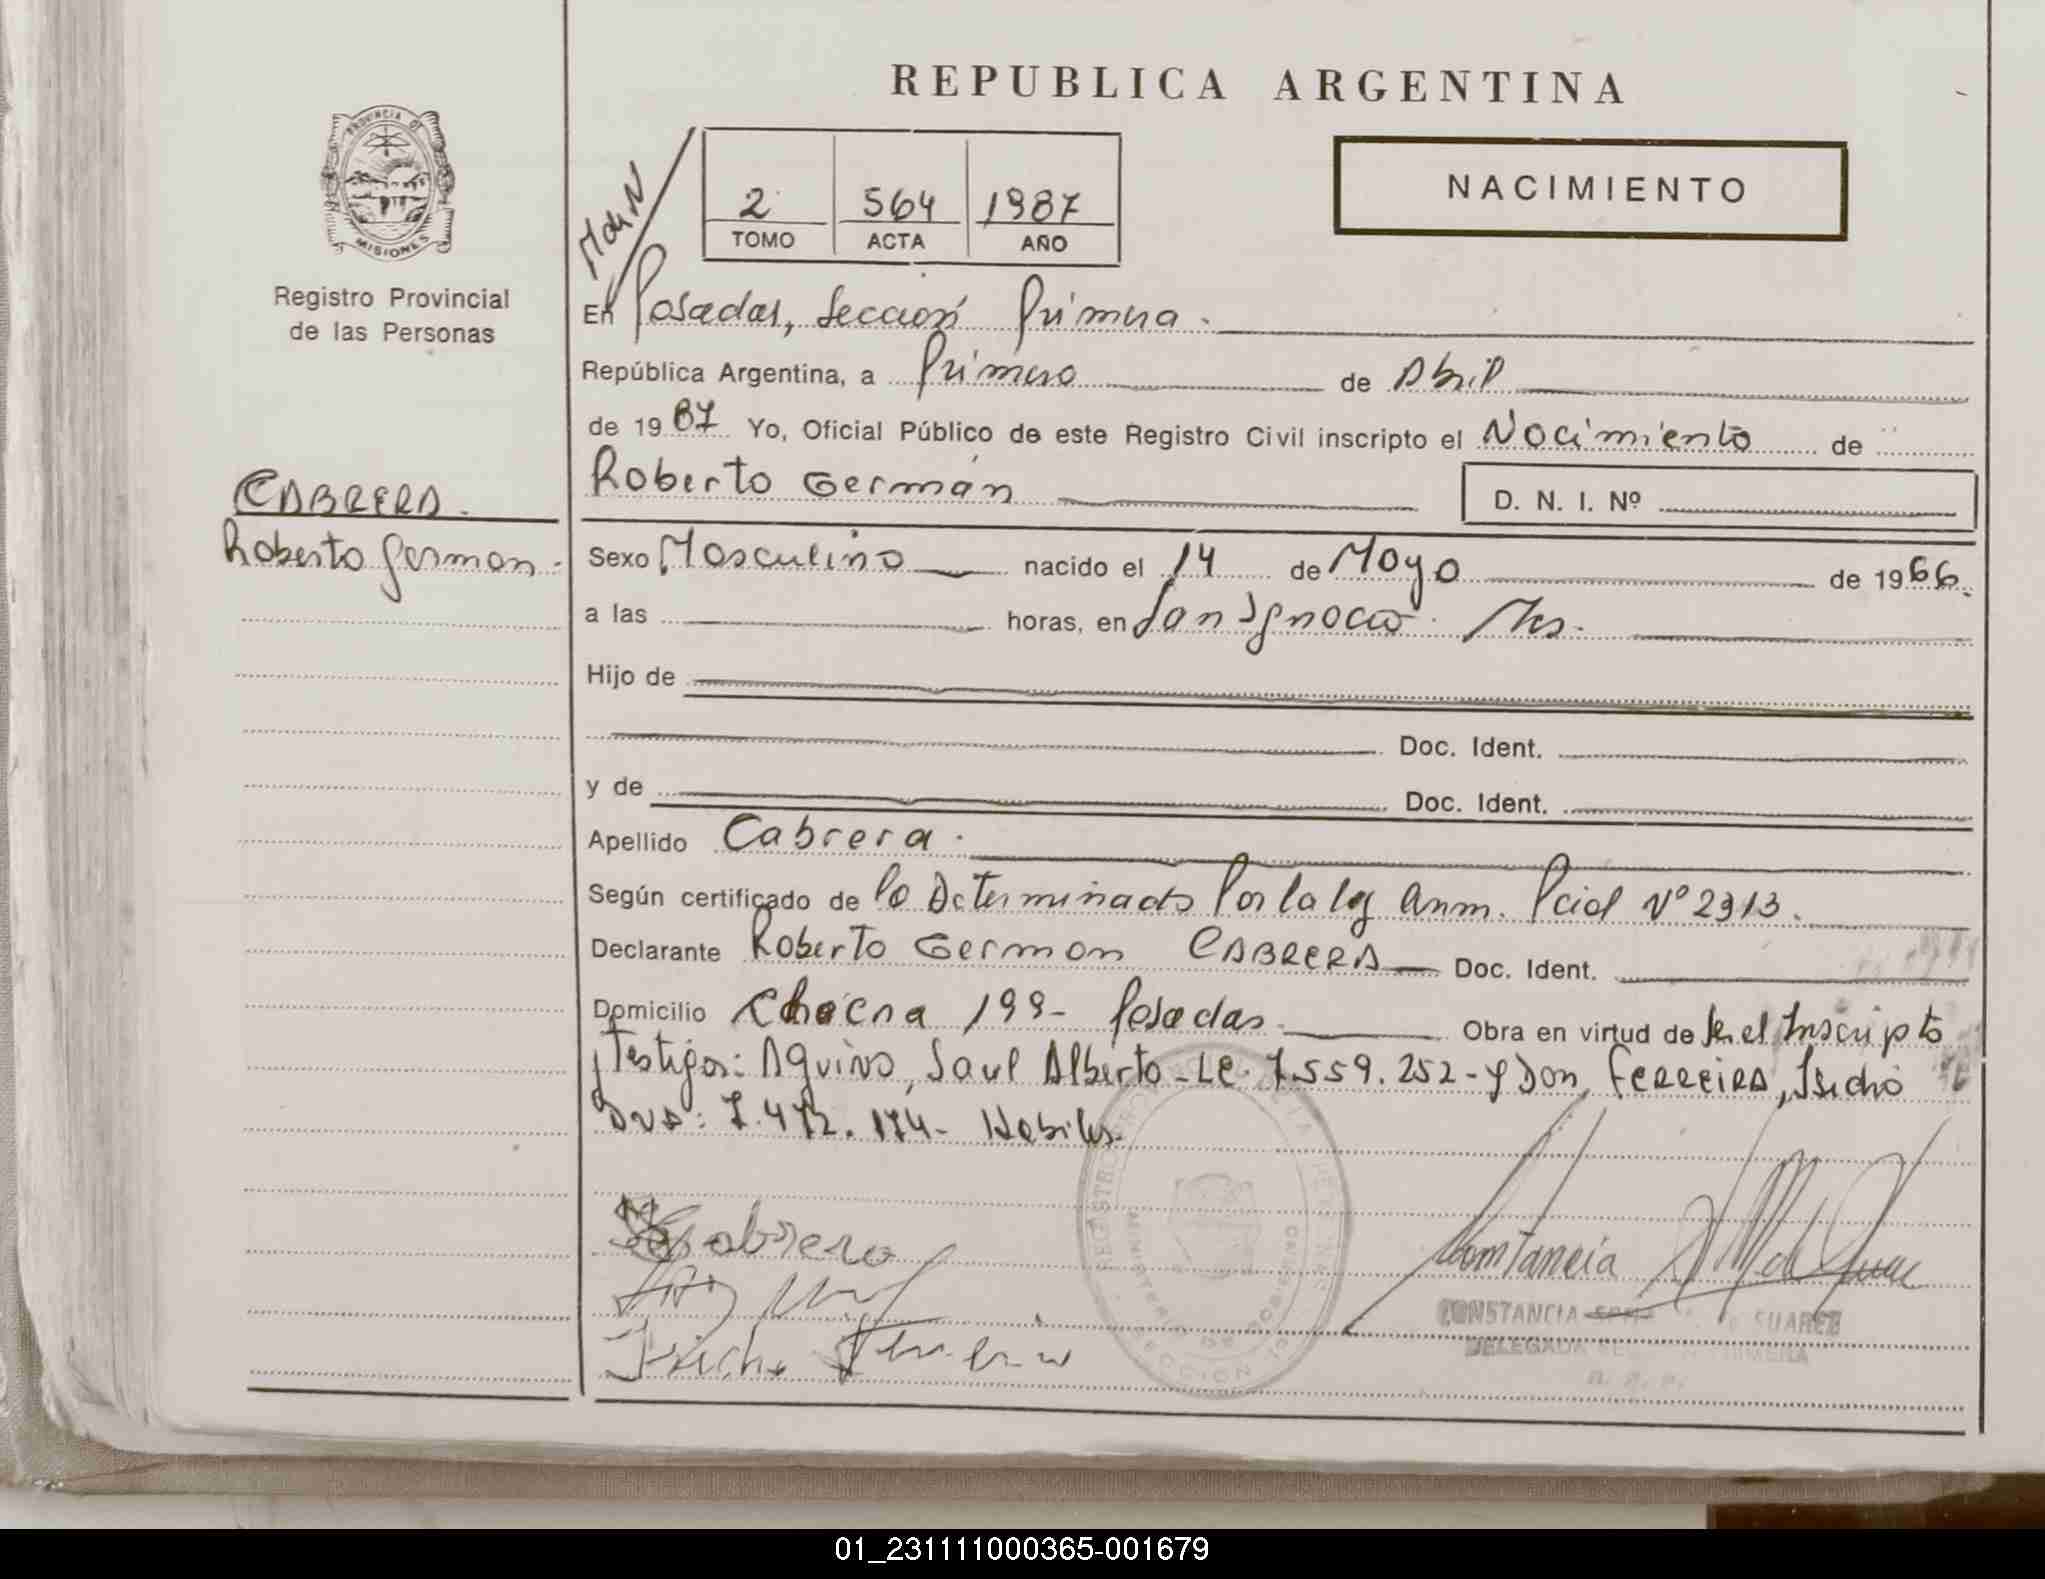 REPUBLICA ARGENTINA
PROVINCIA DE
MISIONES
Registro Provincial
de las Personas
2 564 1987
TOMO ACTA AÑO
NACIMIENTO
En Posadas, Sección Primera.
República Argentina, a Primero de Abril
de 1987 Yo, Oficial Público de este Registro Civil inscripto el Nacimiento de
Roberto Germán D. N. I. Nº
CABRERA.
Roberto German.
Sexo Masculino nacido el 14 de Mayo de 1966.
a las horas, en San Ignacio. Mns.
Hijo de
Doc. Ident.
y de Doc. Ident.
Apellido Cabrera.
Según certificado de lo Determinado Por la ley Pcial Nº 2913.
Declarante Roberto German CABRERA Doc. Ident.
Domicilio 199- Posadas Obra en virtud de ser el Inscripto
Testigos: Aquino, Saul Alberto - LE. 7.559.252 - y Don, FERREIRA, Isidro
7.472.174- Habiles.
Cabrera
Constancia
CONSTANCIA SUAREZ
DELEGADA PRIMERA
01_231111000365-001679